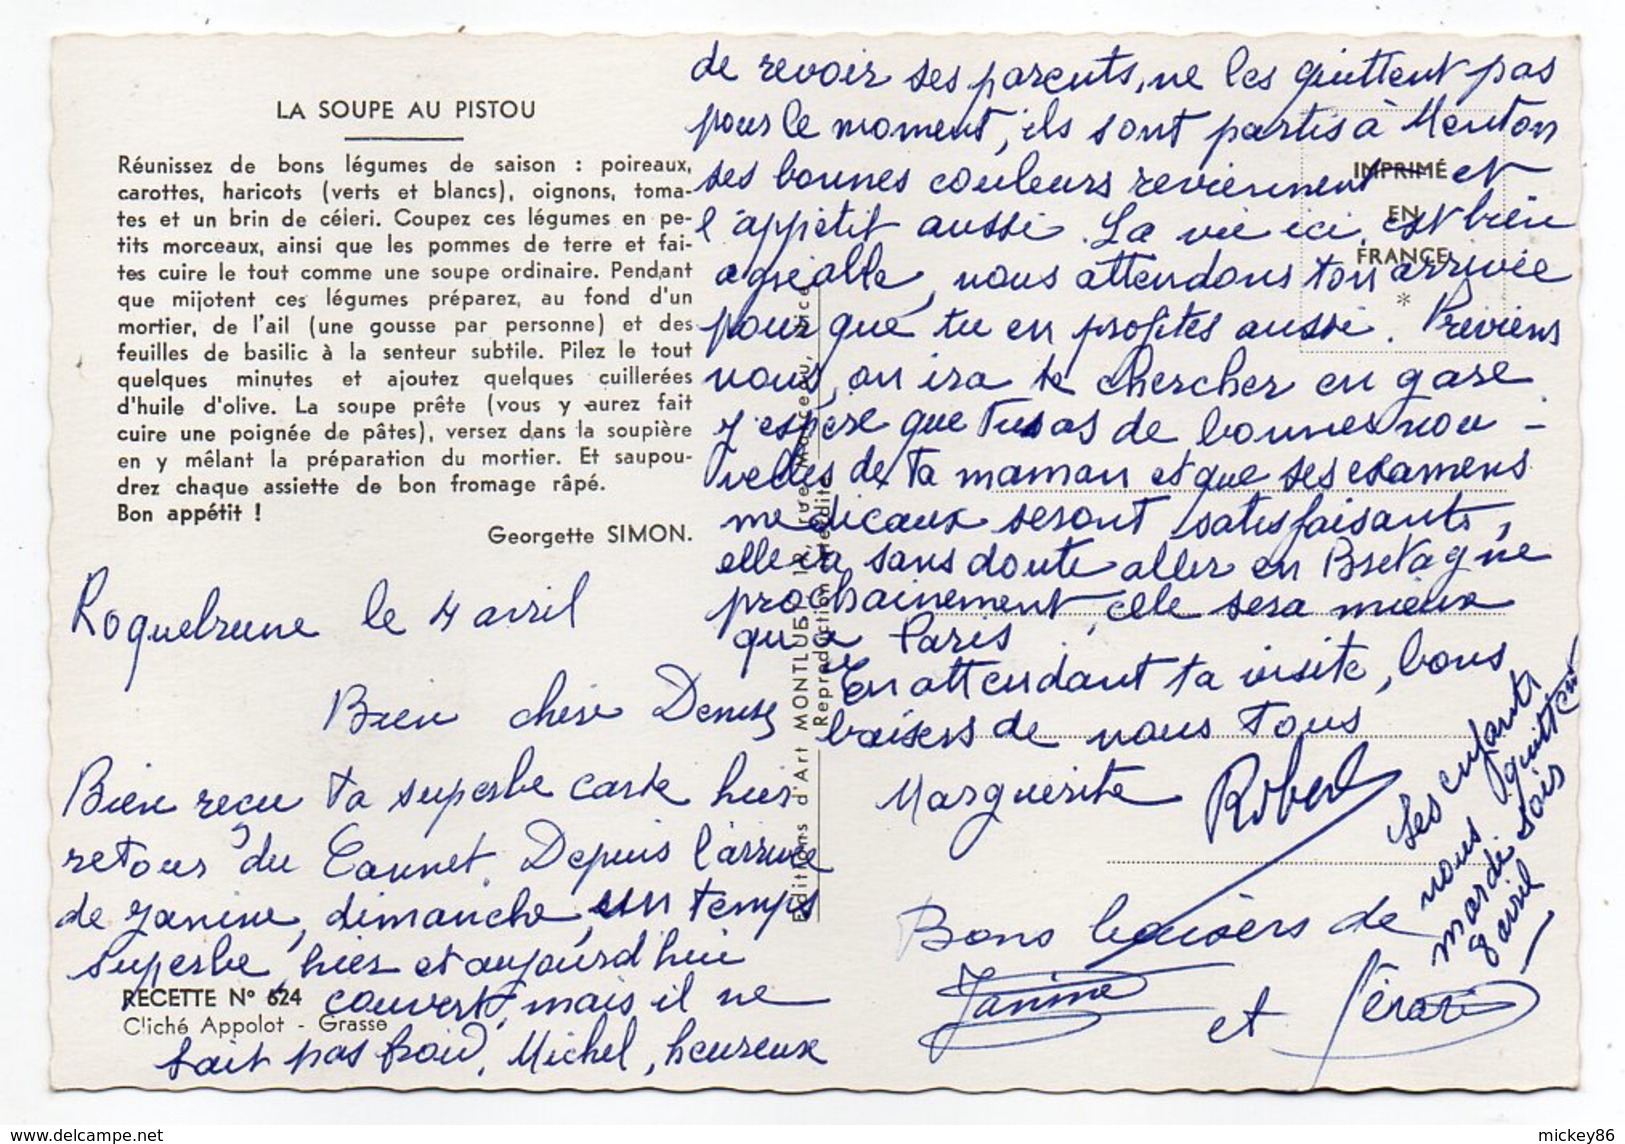 LA SOUPE AU PISTOU
Réunissez de bons légumes de saison : poireaux,
carottes, haricots (verts et blancs), oignons, toma-
tes et un brin de céleri. Coupez ces légumes en pe-
tits morceaux, ainsi que les pommes de terre et fai-
tes cuire le tout comme une soupe ordinaire. Pendant
que mijotent ces légumes préparez, au fond d'un
mortier, de l'ail (une gousse par personne) et des
feuilles de basilic à la senteur subtile. Pilez le tout
quelques minutes et ajoutez quelques cuillerées
d'huile d'olive. La soupe prête (vous y aurez fait
cuire une poignée de pâtes), versez dans la soupière
en y mêlant la préparation du mortier. Et saupou-
drez chaque assiette de bon fromage râpé.
Bon appétit !
Georgette SIMON.
Roquebrune le 4 avril
Bien chère Denise
Bien reçu ta superbe carte hier
retour du Cannet. Depuis l'arrivée
de Janine, dimanche, un temps
superbe, hier et aujourd'hui
couvert, mais il ne
fait pas froid. Michel, heureux
RECETTE N° 624
Cliché Appolot - Grasse
de revoir ses parents, ne les quittent pas
pour le moment, ils sont partis à Menton
ses bonnes couleurs reviennent et
l'appétit aussi. La vie ici est bien
agréable, nous attendons ton arrivée
pour que tu en profites aussi. Préviens
nous, on ira te chercher en gare
J'espère que tu as de bonnes nou-
velles de ta maman et que ses examens
médicaux seront satisfaisants,
elle va sans doute aller en Bretagne
prochainement, elle sera mieux
qu'à Paris
En attendant ta visite, bons
baisers de nous tous
Marguerite Robert
Bons baisers de
Janine et Gérard
Les enfants
nous quittent
mardi soir
8 avril
IMPRIMÉ
EN
FRANCE
*
Editions d'Art MONTLUET, rue Marceau, Nice
Reproduction interdite
mickey86